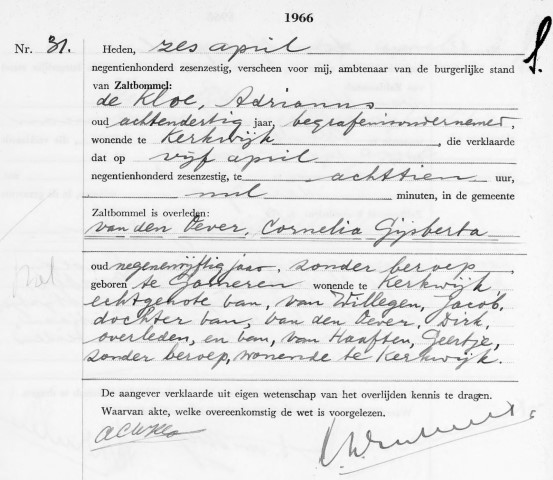 1966
Nr. 31. Heden, zes april
negentienhonderd zesenzestig, verscheen voor mij, ambtenaar van de burgerlijke stand
van Zaltbommel:
de Kloe, Adrianus
oud achtendertig jaar, begrafenisondernemer,
wonende te Kerkwijk, die verklaarde
dat op vijf april
negentienhonderd zesenzestig, te achttien uur,
nul minuten, in de gemeente
Zaltbommel is overleden:
van den Oever, Cornelia Gijsberta
oud negenenvijftig jaar, zonder beroep
geboren te Gameren wonende te Kerkwijk,
echtgenote van, van Willegen, Jacob,
dochter van, van den Oever, Dirk,
overleden, en van, van Haaften, Geertje,
zonder beroep, wonende te Kerkwijk.
De aangever verklaarde uit eigen wetenschap van het overlijden kennis te dragen.
Waarvan akte, welke overeenkomstig de wet is voorgelezen.